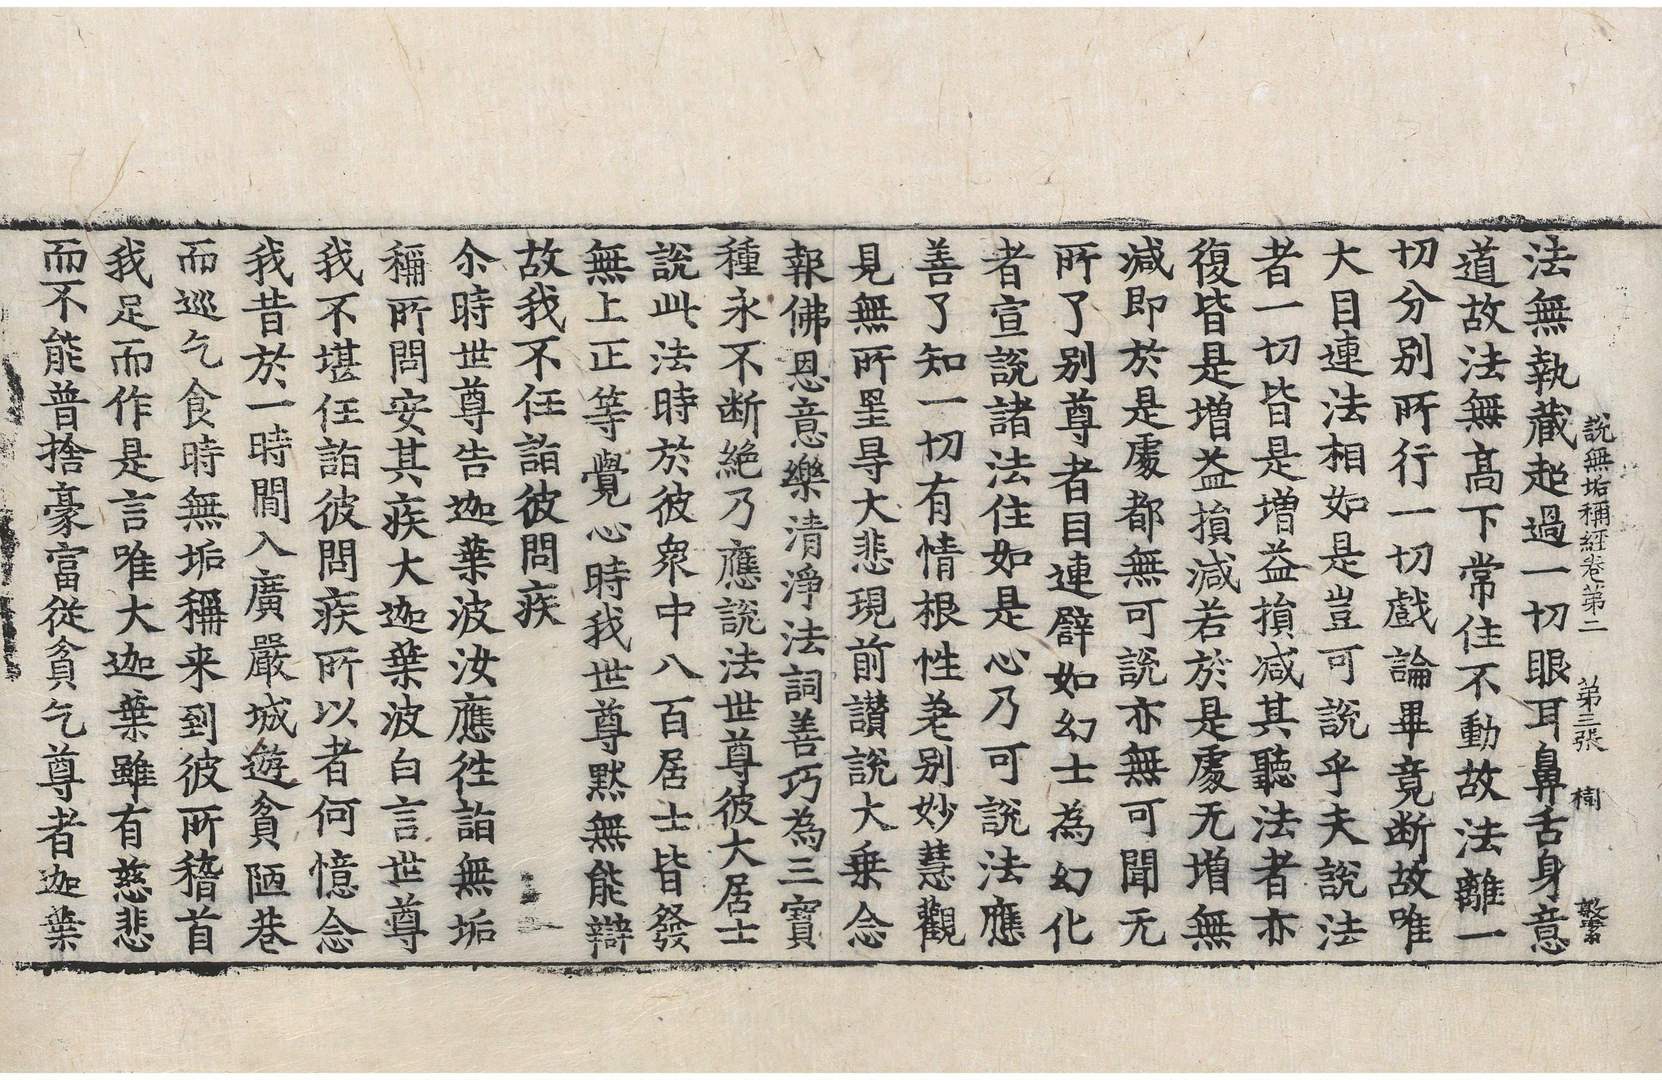 說無垢稱經卷第二 第三張 樹
法無執藏超過一切眼耳鼻舌身意
道故法無高下常住不動故法離一
切分別所行一切戲論畢竟断故唯
大目連法相如是豈可說乎夫說法
者一切皆是增益損減其聽法者亦
復皆是增益損減若於是處无增無
減即於是處都無可說亦無可聞无
所了別尊者目連譬如幻士為幻化
者宣說諸法住如是心乃可說法應
善了知一切有情根性差別妙慧觀
見無所罣㝵大悲現前讃說大乗念
報佛恩意樂清淨法詞善巧為三寶
種永不断絶乃應說法世尊彼大居士
說此法時於彼衆中八百居士皆發
無上正等覺心時我世尊默無能辯
故我不任詣彼問疾
尒時世尊告迦葉波汝應徃詣無垢
稱所問安其疾大迦葉波白言世尊
我不堪任詣彼問疾所以者何憶念
我昔於一時間入廣嚴城遊貧陋巷
而巡乞食時無垢稱来到彼所稽首
我足而作是言唯大迦葉雖有慈悲
而不能普捨豪富從貧乞尊者迦葉